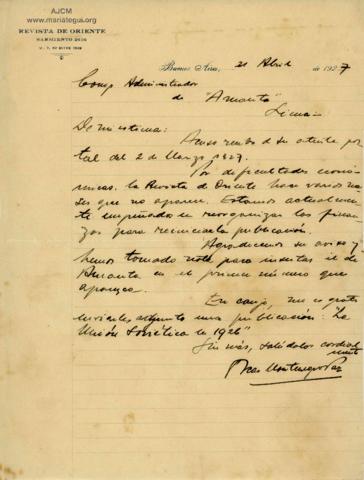 AJCM
www.mariategui.org
REVISTA DE ORIENTE
SARMIENTO 2616
Buenos Aires, 21 Abril de 1927
Comp Administrador
de "Amauta"
Lima—
De mi estima: Acuso recibo de su atenta pos
tal del 2 de Marzo 1927.
Por dificultades econó
micas, la Revista de Oriente hace varios me
ses que no aparece. Estamos actualmen
te empeñados en reorganizar las finan
zas para reiniciar la publicación.
Agradecemos su aviso y
hemos tomado nota para insertar el de
Amauta en el primer número que
aparezca.
En canje, me es grato
enviarles adjunto una publicación: "La
Unión Soviética en 1926"
Sin más, salúdolos cordial
mente